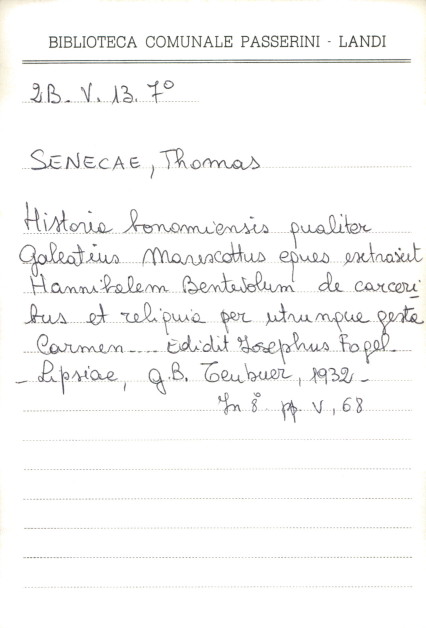 BIBLIOTECA COMUNALE PASSERINI - LANDI
2B. V. 13. 7º
SENECAE, Thomas
Historia bononiensis qualiter
Galeatius Marescottus eques extraxit
Hannibalem Bentivolum de carceri
bus et reliquia per utrunque gesta
Carmen.... Edidit Josephus Fogel.
- Lipsiae, G.B. Teubner, 1932 -
In 8º pp. V, 68